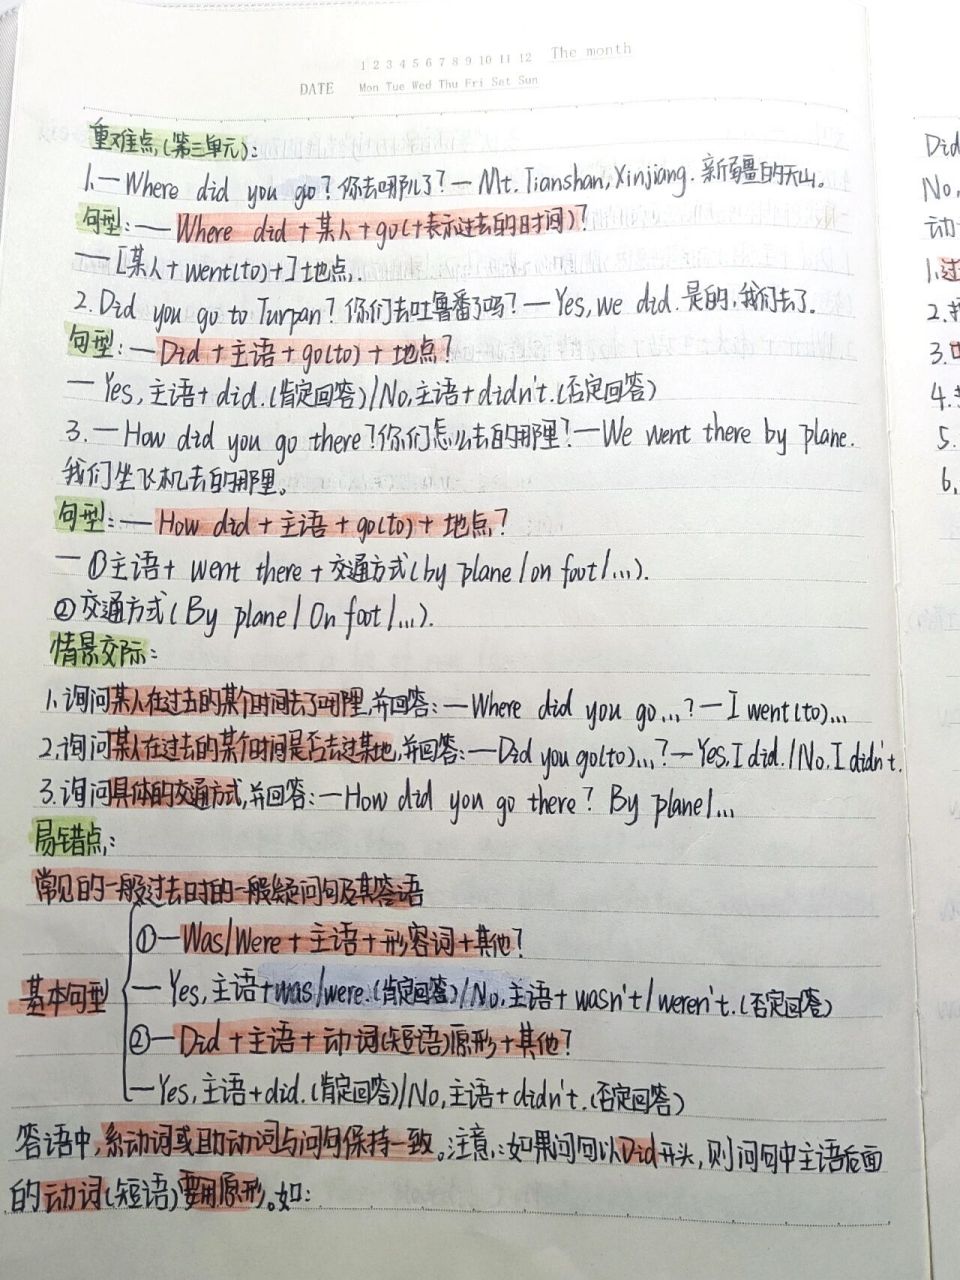 1 2 3 4 5 6 7 8 9 10 11 12 The month
DATE Mon Tue Wed Thu Fri Sat Sun
重难点(第三单元):
1.—Where did you go?你去哪儿了?—Mt. Tianshan, Xinjiang. 新疆的天山。
句型:—Where did+某人+go(+表示过去的时间)?
—[某人+went(to)+]地点.
2.Did you go to Turpan?你们去吐鲁番了吗?—Yes, we did.是的,我们去了。
句型:—Did+主语+go(to)+地点?
—Yes,主语+did.(肯定回答)/No,主语+didn't.(否定回答)
3.—How did you go there?你们怎么去的那里?—We went there by plane.
我们坐飞机去的那里。
句型:—How did+主语+go(to)+地点?
—①主语+went there+交通方式(by plane/on foot/...).
②交通方式(By plane/On foot/...).
情景交际:
1.询问某人在过去的某个时间去了哪里,并回答:—Where did you go...?—I went(to)...
2.询问某人在过去的某个时间是否去过某地,并回答:—Did you go(to)...?—Yes,I did./No,I didn't.
3.询问具体的交通方式,并回答:—How did you go there? By plane/...
易错点:
常见的一般过去时的一般疑问句及其答语
①—Was/Were+主语+形容词+其他?
基本句型 —Yes,主语+was/were.(肯定回答)/No,主语+wasn't/weren't.(否定回答)
②—Did+主语+动词(短语)原形+其他?
—Yes,主语+did.(肯定回答)/No,主语+didn't.(否定回答)
答语中,系动词或助动词与问句保持一致。注意:如果问句以Did开头,则问句中主语后面
的动词(短语)要用原形。如:
Did
No,
动
1.过
2.
3.
4.
5.
6.